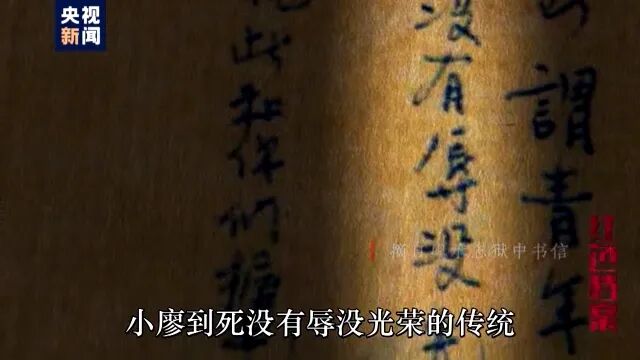 央视
新闻
谓青年
没有辱没
此和你们握
狱中书信
红色档案
小廖到死没有辱没光荣的传统